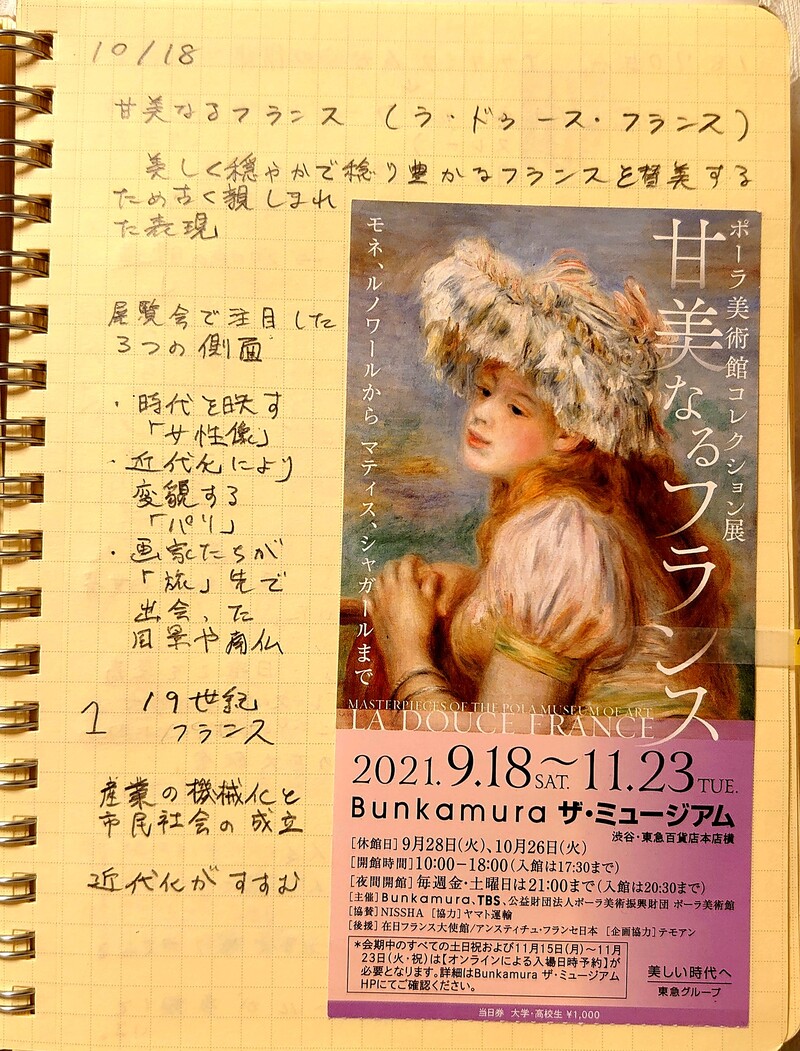 10/18
甘美なるフランス (ラ・ドゥース・フランス)
美しく穏やかで稔り豊かなフランスを賛美する
ため古く親しまれ
た表現
展覧会で注目した
3つの側面
・時代を映す
「女性像」
・近代化により
変貌する
「パリ」
・画家たちが
「旅」先で
出会った
風景や南仏
1 19世紀
フランス
産業の機械化と
市民社会の成立
近代化がすすむ
ポーラ美術館コレクション展
甘美なるフランス
モネ、ルノワールから マティス、シャガールまで
MASTERPIECES OF THE POLA MUSEUM OF ART
LA DOUCE FRANCE
2021.9.18SAT.〜11.23TUE.
Bunkamura ザ・ミュージアム
渋谷・東急百貨店本店横
[休館日]9月28日(火)、10月26日(火)
[開館時間]10:00−18:00(入館は17:30まで)
[夜間開館]毎週金・土曜日は21:00まで(入館は20:30まで)
[主催]Bunkamura、TBS、公益財団法人ポーラ美術振興財団 ポーラ美術館
[協賛]NISSHA [協力]ヤマト運輸
[後援]在日フランス大使館/アンスティチュ・フランセ日本 [企画協力]テモアン
*会期中のすべての土日祝および11月15日(月)〜11月
23日(火・祝)は【オンラインによる入場日時予約】が
必要となります。詳細はBunkamura ザ・ミュージアム
HPにてご確認ください。
美しい時代へ
東急グループ
当日券 大学・高校生 ¥1,000